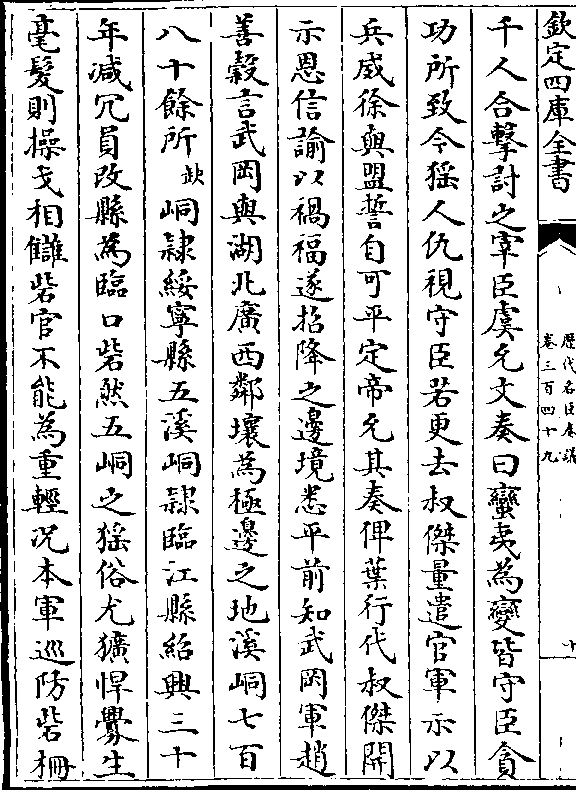 欽定四庫全書
歷代名臣奏議
卷三百四十九
十
千人合擊討之宰臣虞允文奏曰蠻夷為變皆守臣貪
功所致今猺人仇視守臣若更去叔傑量遣官軍示以
兵威徐與盟誓自可平定帝允其奏俾葉行代叔傑開
示恩信諭以禍福遂招降之邊境悉平前知武岡軍趙
善穀言武岡與湖北廣西鄰壤為極邊之地溪峒七百
八十餘所缺峒隷綏寧縣五溪峒隷臨江縣紹興三十
年减冗員改縣為臨口砦然五峒之猺俗尤獷悍釁生
毫髮則操戈相讎砦官不能為重輕况本軍巡防砦柵